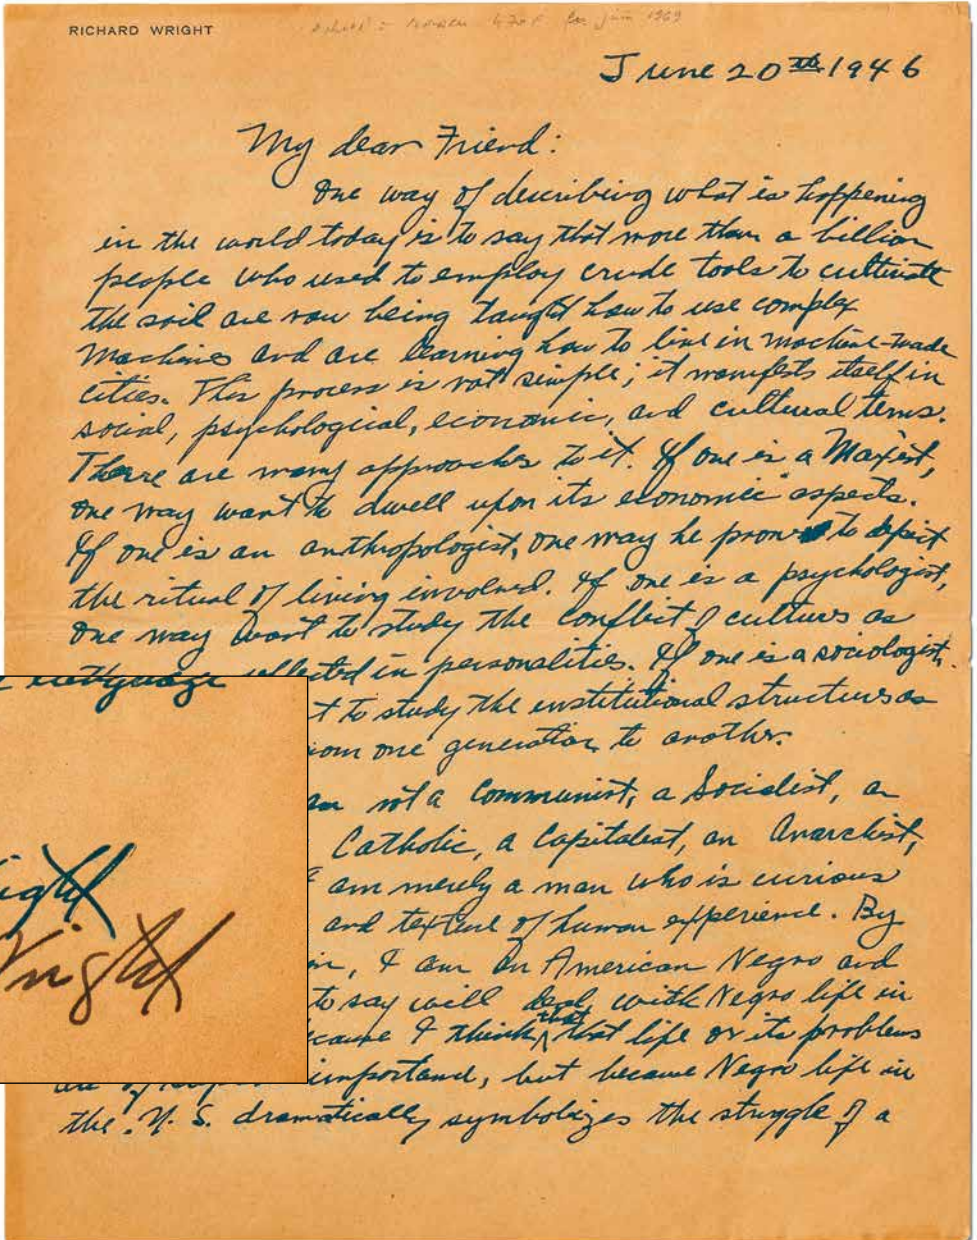 RICHARD WRIGHT
June 20th 1946
My dear Friend:
One way of describing what is happening
in the world today is to say that more than a billion
people who used to employ crude tools to cultivate
the soil are now being taught how to use complex
machines and are learning how to live in machine-made
cities. This process is not simple; it manifests itself in
social, psychological, economic, and cultural terms.
There are many approaches to it. If one is a Marxist,
one may want to dwell upon its economic aspects.
If one is an anthropologist, one may be prone to depict
the ritual of living involved. If one is a psychologist,
one may want to study the conflict of cultures as
reflected in personalities. If one is a sociologist,
t to study the institutional structures as
from one generation to another.
am not a Communist, a Socialist, an
Catholic, a Capitalist, an Anarchist,
I am merely a man who is curious
and texture of human experience. By
I am an American Negro and
to say will deal with Negro life in
because I think that that life or its problems
importance, but because Negro life in
the U. S. dramatically symbolizes the struggle of a
ight
Wright